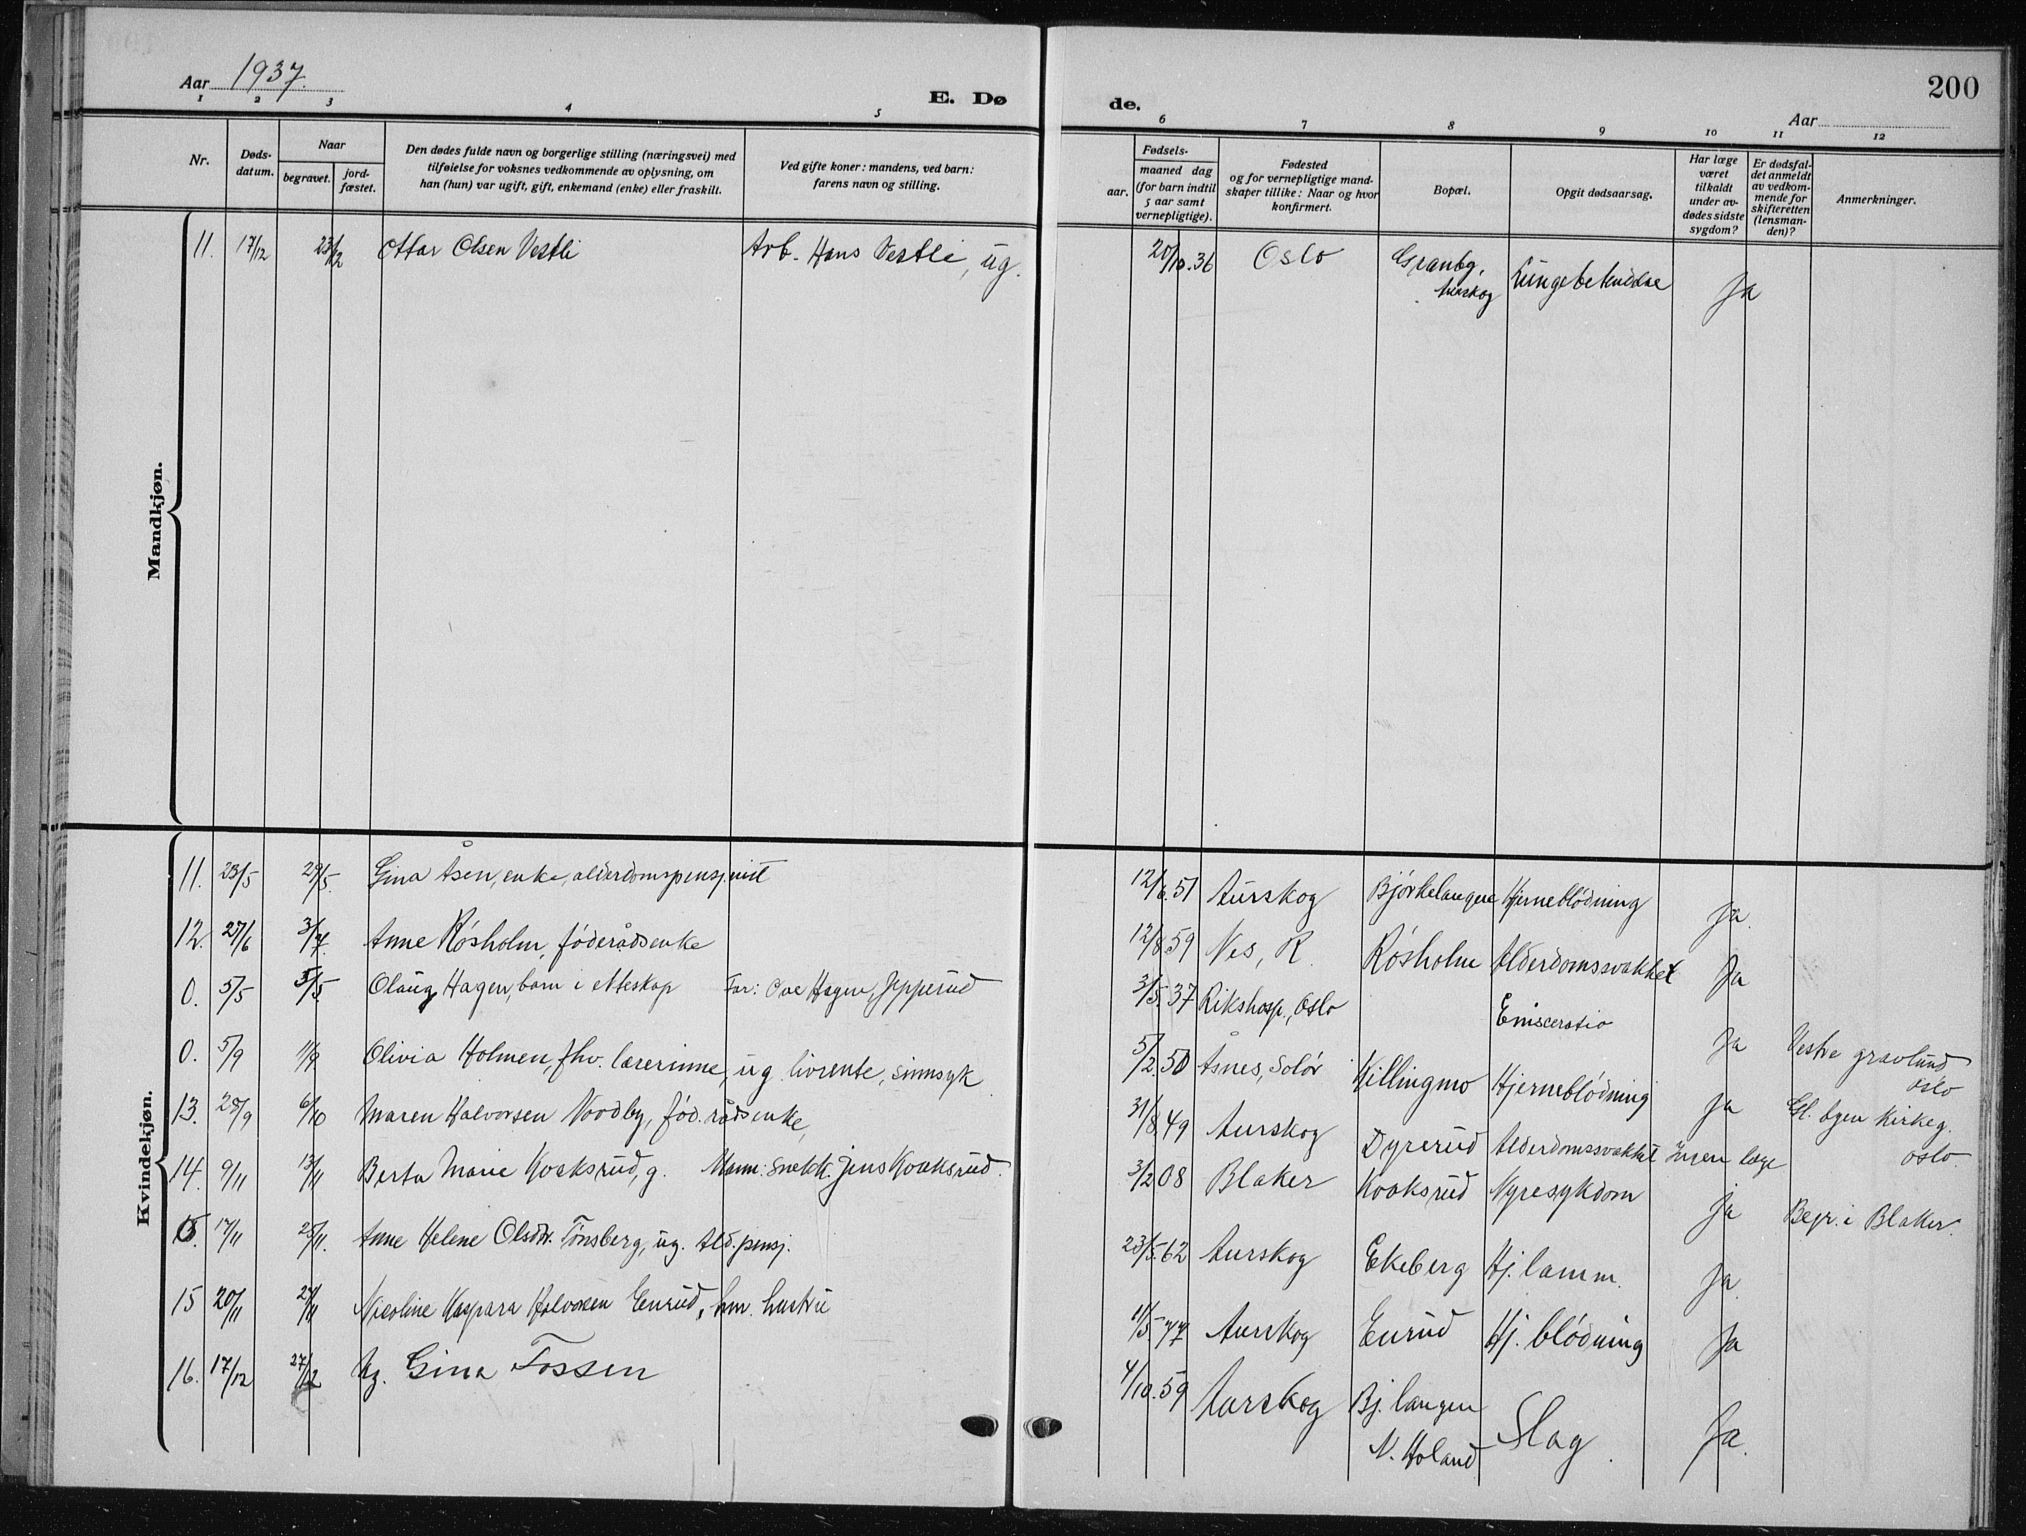 Aar 1937.
E. Dø de.
200
Aar
1 2 3 4 5 6 7 8 9 10 11 12
Nr.
Døds-datum.
Naar
begravet.
jord-fæstet.
Den dødes fulde navn og borgerlige stilling (næringsvei) med
tilføielse for voksnes vedkommende av oplysning, om
han (hun) var ugift, gift, enkemand (enke) eller fraskilt.
Ved gifte koner: mandens, ved barn:
farens navn og stilling.
Fødsels-
aar.
maaned dag
(for barn indtil
5 aar samt
vernepligtige).
Fødested
og for vernepligtige mand-
skaper tillike: Naar og hvor
konfirmert.
Bopæl.
Opgit dødsaarsag.
Har læge
været
tilkaldt
under av-
dødes sidste
sygdom?
Er dødsfal-
det anmeldt
av vedkom-
mende for
skifteretten
(lensman-
den)?
Anmerkninger.
Mandkjøn.
11. 17/12 23/12 Ottar Olsen Vestli Arb. Hans Vestli, ug. 20/10.36 Oslo Granbg, Lungebetendelse Ja
Kvindekjøn.
11. 23/5 29/5. Gina Åsen, enke, alderdomspensjonist 12/6.51 Aurskog Bjørkelangen Hjerneblødning Ja.
12. 27/6 3/7. Anne Røsholm, føderådsenke 12/8 59 Nes, R. Røsholm Alderdomssvakhet Ja
0. 5/5 5/5 Olaug Hagen, barn i ekteskap Far: Hagen, Jepperud 3/5.37 Rikshosp., Oslo Ja Vestre gravlund
Oslo
0. 5/9 11/9 Olivia Holmen, fhv. lærerinne, ug. livrente, sinnsyk 5/2.50 Åsnes, Solør Killingmo Hjerneblødning Ja Gl. byen Kirkeg.
Oslo.
13. 28/9 6/10 Maren Halvorsen Nordby, fød.rådsenke, 31/8.49 Aurskog Dyrerud Alderdomssvakhet Ingen læge
14. 9/11 13/11 Berta Marie Kvaksrud, g. Mann: Snekk. Jens Kvaksrud. 3/2 08 Blaker Kvaksrud Nyresykdom Ja Begr. i Blaker.
17/11 25/11. Anne Helene Olsdtr. Tønsberg, ug. Ald.pensj. 23/5.62 Aurskog Ekeberg Hj. lamm. Ja.
15 20/11 27/11 Nicoline Kaspara Halvorsen Enrud, hm. hustru 11/5.77 Aurskog Enrud Hj. blødning Ja
16. 17/12 27/12 Ug. Gina Fossen 4/10.59 Aurskog Bj. langen Slag. Ja.
N. Høland